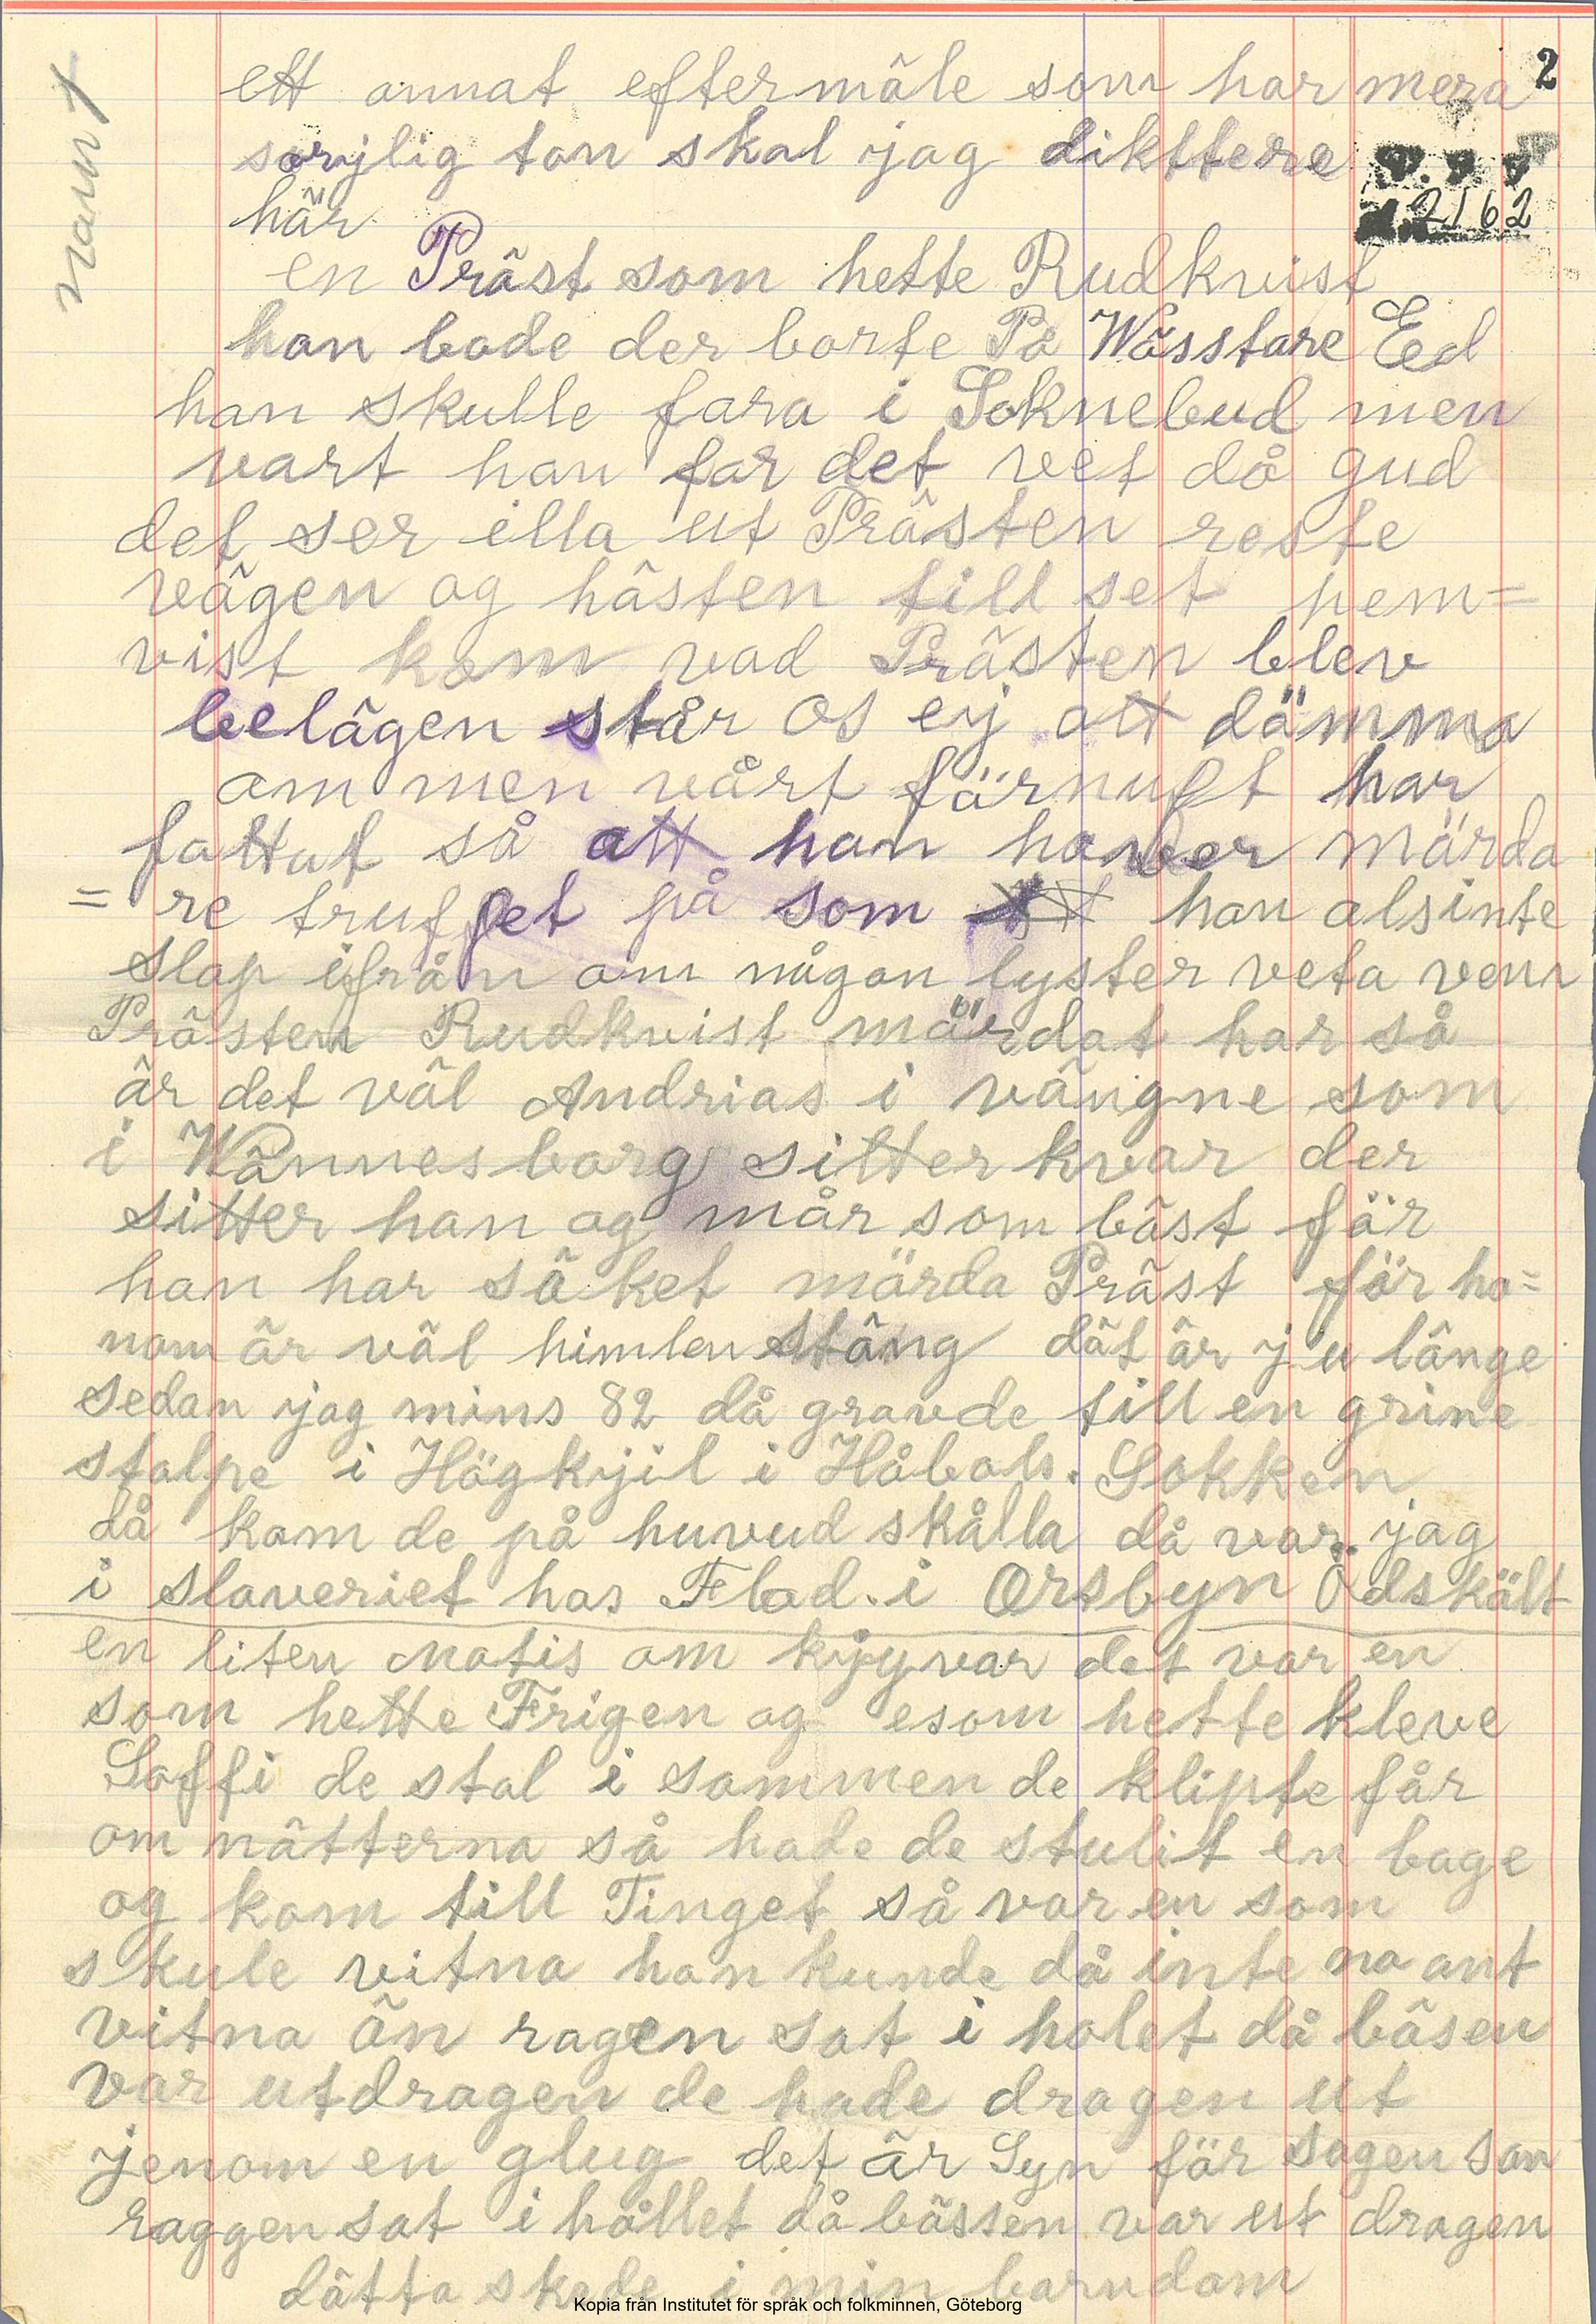 ett annat eftermäle som har mera 2
sorjlig ton skal jag dikttere
2162
här
en Präst som hette Rudkvist
han bode der borte På Wässtare Eed
han skulle fara i Soknebud men
vart han far det vet då gud
det ser illa ut Prästen reste
vägen og hästen till set hem=
vist kom vad Prästen blev
belägen står os ej att dämma
om men vårt förnuft har
fattat så att han haver mörda
= re truffet på som han alsinte
slap ifrån om någon lyster veta vem
Prästen Rudkvist mördat har så
är det väl Andrias i vängne som
i Wännesborg sitter kvar der
sitter han og mår som bäst för
han har söket mörda Präst för ho=
nom är väl himlen stäng dät är ju länge
sedan jag mins 82 då gravde till en grine
stolpe i Högkjil i Håbols. Sokken
då kom de på huvud skålla då var. jag
i slaveriet hos Flod. i Orsbyn Ödskält
en liten Notis om kjyvar det var en
som hette Frigen og esom hette kleve
Soffi de stal i sammen de klipte får
om nätterna så hade de stulit en bage
og kom till Tinget så var en som
skule vitna han kunde då inte na ant
vitna än ragen sat i holet då bäsen
var utdragen de hade dragen ut
jenom en glug det är Syn för sagen san
raggen sat i hållet då bässen var ut dragen
dätta skede i min barndom
Kopia från Institutet för språk och folkminnen, Göteborg